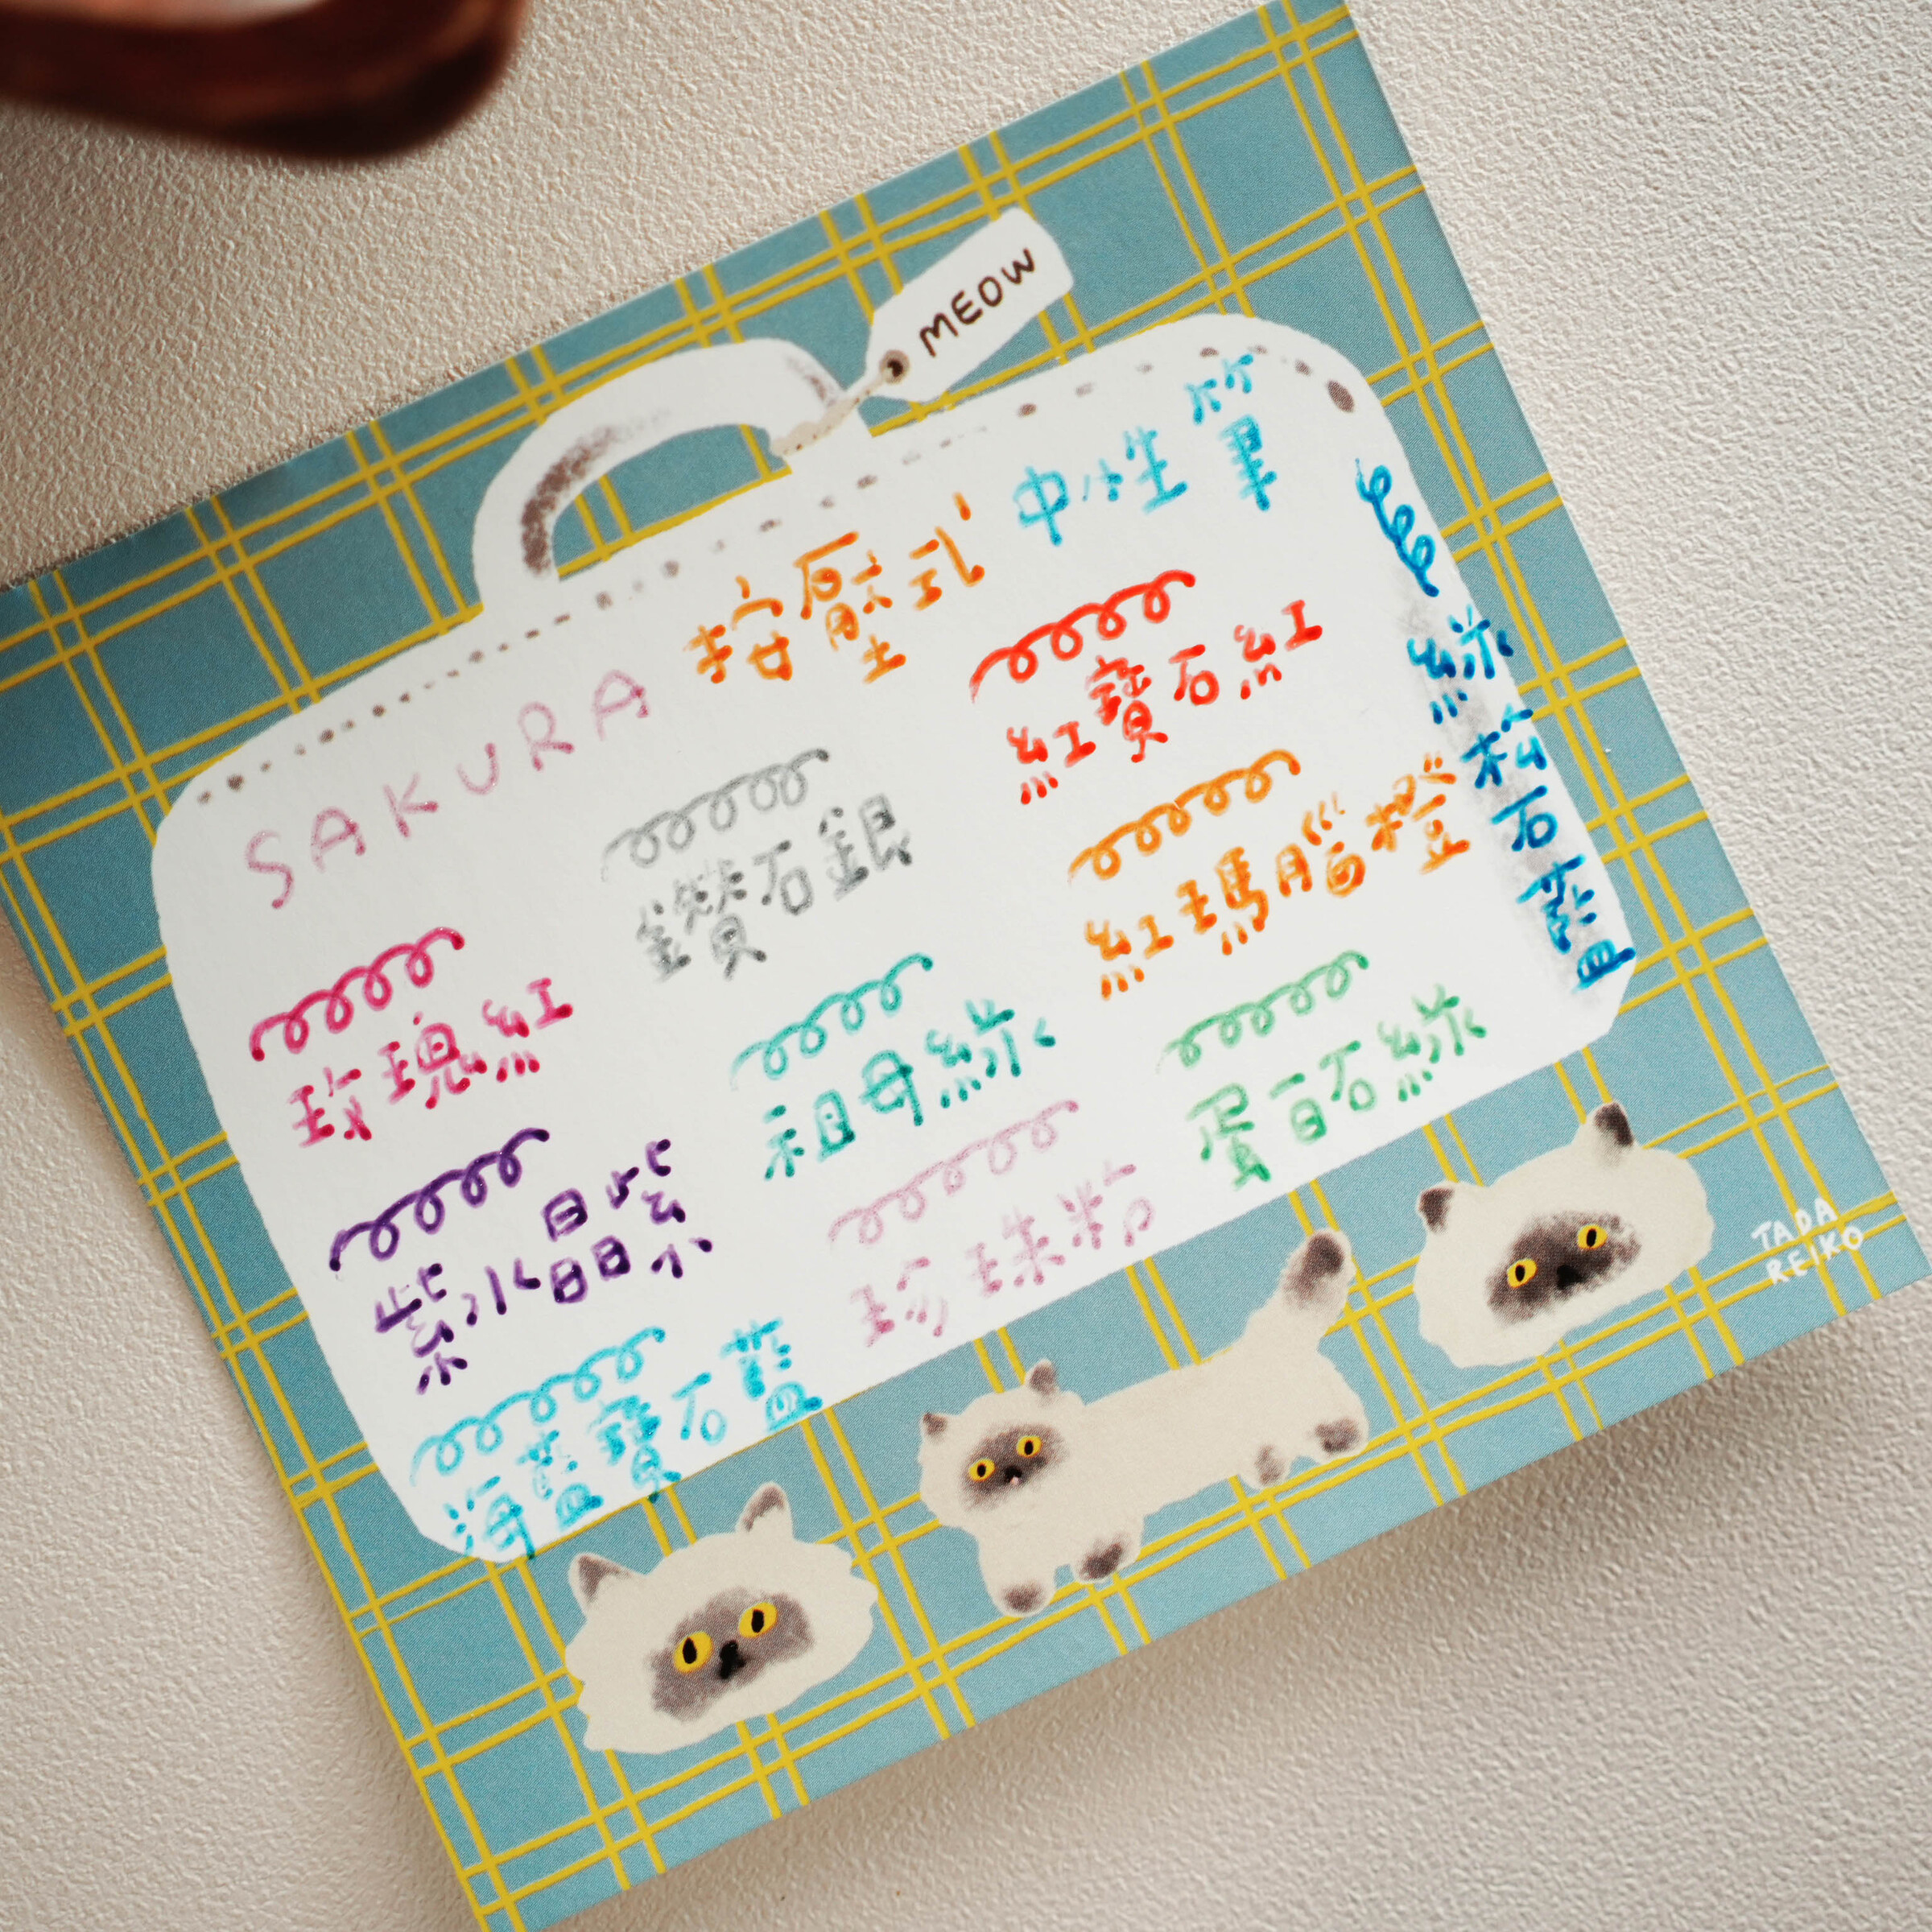 MEOW
SAKURA 按壓式 中性筆
玫瑰紅
鑽石銀
紅寶石紅
紫水晶紫
祖母綠
紅瑪瑙橙
海藍寶石藍
珍珠粉
蛋白石綠
綠松石藍
TADA
REIKO